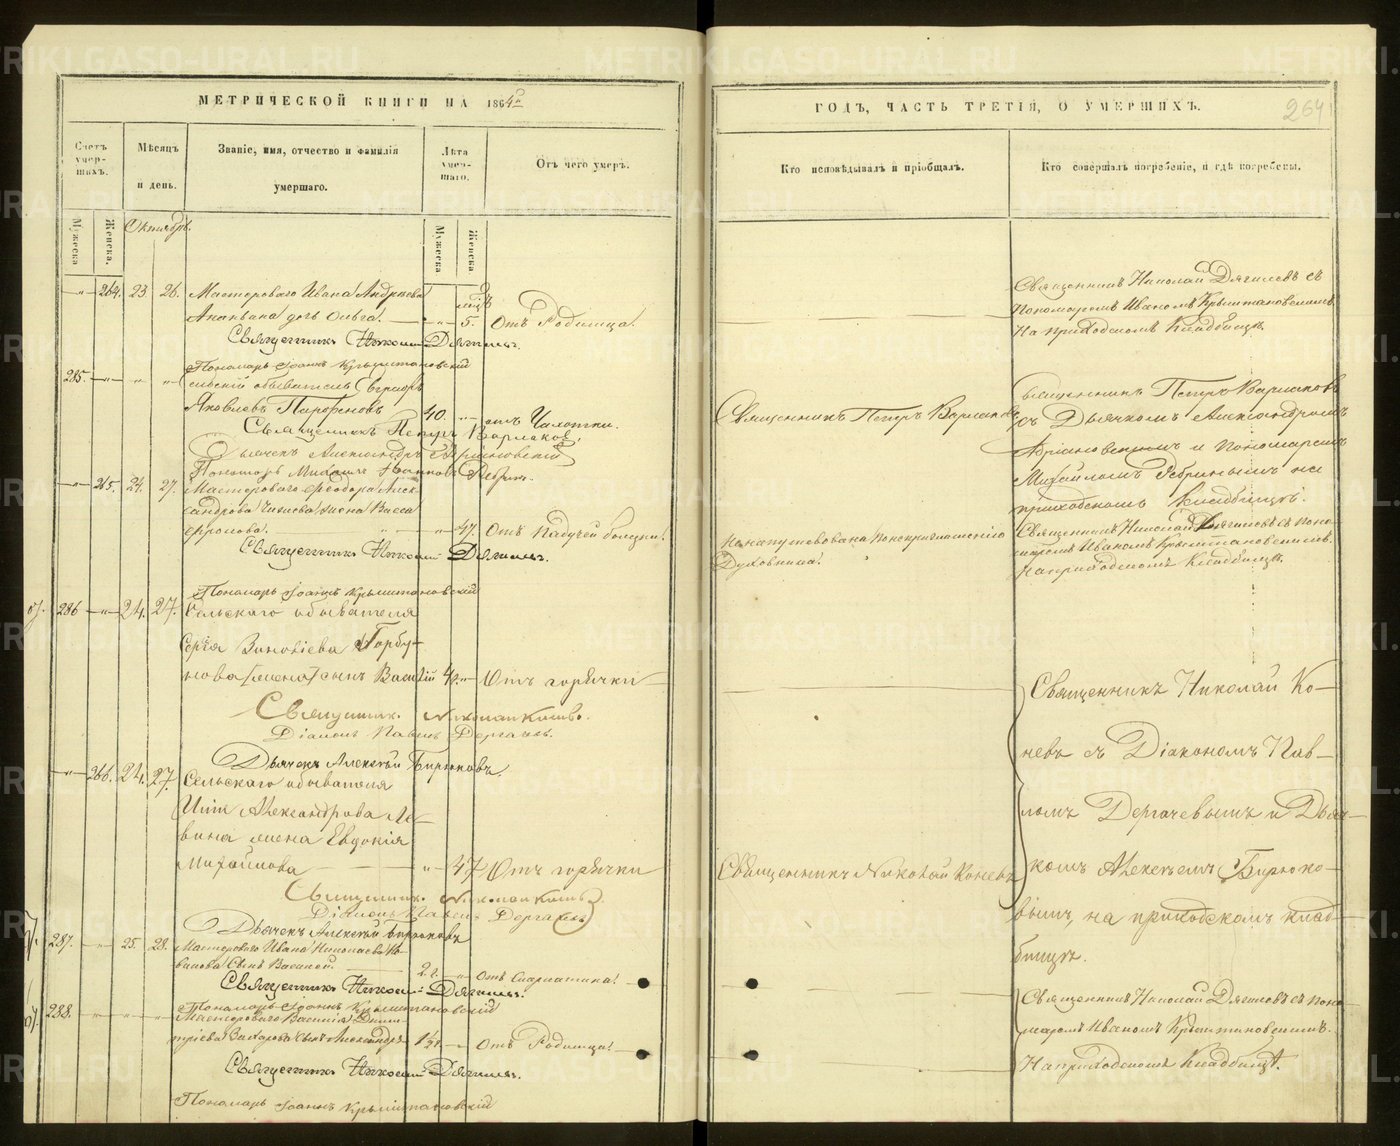 МЕТРИЧЕСКОЙ КНИГИ НА 1864й
Счетъ умер-шихъ.
Мѣсяцъ и день.
Званіе, имя, отчество и фамилія умершаго.
Лѣта умер-шаго.
Отъ чего умеръ.
Мужеска
Женска.
Октябрь.
Мужеска
Женска
264. 23 26. Мастероваго Ивана Андреева
дочь Ольга. 5. Отъ Родимца!
Священникъ Николай Дягилевъ.
Пономарь Іоаннъ Крыштановскій
285. сельскій обыватель Евграфъ
Яковлевъ Парфеновъ 40. отъ Чахотки.
Священникъ Петръ Варлаковъ,
Дьячекъ Александръ Адріановскій
Пономарь Михаилъ
265. 24. 27. Мастероваго Феодора Алек-
сандрова жена Васса
Фролова. 47. Отъ Падучей болезни!
Священникъ Николай Дягилевъ.
Пономарь Іоаннъ Крыштановскій
286 24. 27. Сельскаго обывателя
Сергія Зиновіева Горбу-
нова (жена) сынъ Василій 4 Отъ горячки
Священникъ Николай Коневъ.
Діаконъ Павелъ Дергачевъ.
Дьячекъ Алексѣй Бирюковъ.
266. 24. 27. Сельскаго обывателя
Александрова Ле-
вина жена Евдокія
Михайлова 47 Отъ горячки
Священникъ Николай Коневъ.
Діаконъ Павелъ Дергачевъ
Дьячекъ Алексѣй Бирюковъ
287. 25. 28. Мастероваго Ивана Николаева
сынъ Василій. 2 Отъ Скарлатина!
Священникъ Николай Дягилевъ.
Пономарь Іоаннъ Крыштановскій
288 Мастероваго Василія Дми-
тріева Захарова сынъ Александръ 1½ Отъ Родимца!
Священникъ Николай Дягилевъ.
Пономарь Іоаннъ Крыштановскій
ГОДЪ, ЧАСТЬ ТРЕТІЯ, О УМЕРШИХЪ.
264
Кто исповѣдывалъ и пріобщалъ.
Кто совершалъ погребеніе, и гдѣ погребены.
Священникъ Николай Дягилевъ съ
Пономаремъ Иваномъ Крыштановскимъ
На приходскомъ Кладбищѣ
Священникъ Петръ Варлаковъ
Священникъ Петръ Варлаковъ
съ Дьячкомъ Александромъ
Адріановскимъ и Пономаремъ
Михайломъ на
приходскомъ кладбищѣ.
Духовника!
Священникъ Николай Дягилевъ съ поно-
маремъ Иваномъ Крыштановскимъ.
на приходскомъ Кладбищѣ.
Священникъ Николай Ко-
невъ съ Діакономъ Пав-
ломъ Дергачевымъ и Дьяч-
Священникъ Николай Коневъ
комъ Алексѣемъ Бирюко-
вымъ на приходскомъ клад-
бищѣ.
Священникъ Николай Дягилевъ съ поно-
маремъ Иваномъ Крыштановскимъ.
На приходскомъ Кладбищѣ.
METRIKI.GASO-URAL.RU